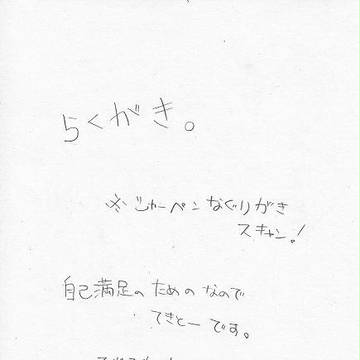 らくがき。
※シャーペンなぐりがき
スキャン!
自己満足のためのなので
てきとーです。